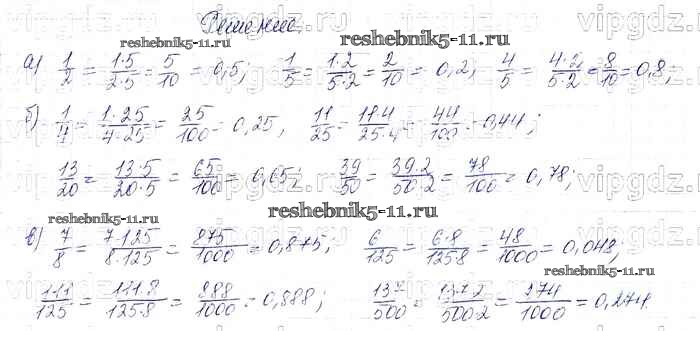 Решение.
reshebnik5-11.ru.
vipgdz.ru
а) 1/2 = 1·5/2·5 = 5/10 = 0,5; 1/5 = 1·2/5·2 = 2/10 = 0,2; 4/5 = 4·2/5·2 = 8/10 = 0,8;
б) 1/4 = 1·25/4·25 = 25/100 = 0,25, 11/25 = 11·4/25·4 = 44/100 = 0,44;
13/20 = 13·5/20·5 = 65/100 = 0,65; 39/50 = 39·2/50·2 = 78/100 = 0,78;
reshebnik5-11.ru. reshebnik5-11.ru.
в) 7/8 = 7·125/8·125 = 875/1000 = 0,875; 6/125 = 6·8/125·8 = 48/1000 = 0,048;
reshebnik5-11.ru.
111/125 = 111·8/125·8 = 888/1000 = 0,888; 137/500 = 137·2/500·2 = 274/1000 = 0,274.
reshebnik5-11.ru.